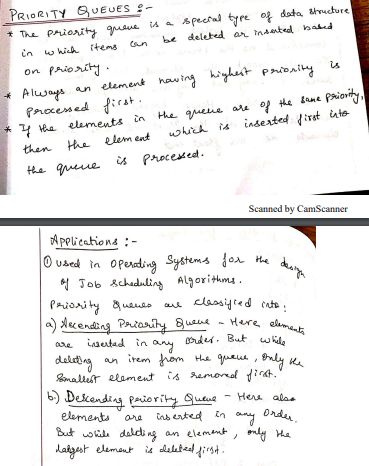 PRIORITY QUEUES :-
* The priority queue is a special type of data structure
in which items can be deleted or inserted based
on priority.
* Always an element having highest priority is
processed first.
* If the elements in the queue are of the same priority,
then the element which is inserted first into
the queue is processed.
Scanned by CamScanner
Applications :-
① used in Operating Systems for the design
of Job Scheduling Algorithms.
Priority Queues are classified into :
a) Ascending Priority Queue - Here elements
are inserted in any order. But while
deleting an item from the queue, only the
smallest element is removed first.
b.) Descending Priority Queue - Here also
elements are inserted in any order.
But while deleting an element, only the
largest element is deleted first.